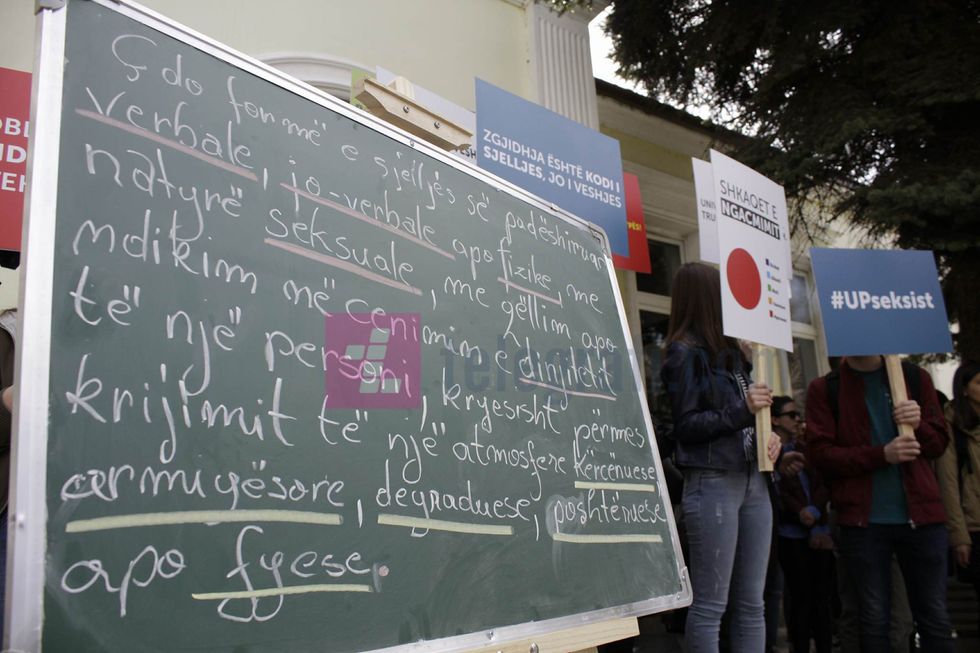 Çdo formë e sjelljes së padëshiruar
verbale, jo-verbale apo fizike, me
natyrë seksuale, me qëllim apo
ndikim në cenimin e dinjitetit
të një personi, kryesisht përmes
krijimit të një atmosfere kërcënuese
armiqësore, degraduese, poshtëruese
apo fyese.
ZGJIDHJA ËSHTË KODI I
SJELLJES, JO I VESHJES
SHKAQET E
NGACMIMIT
#UPseksist